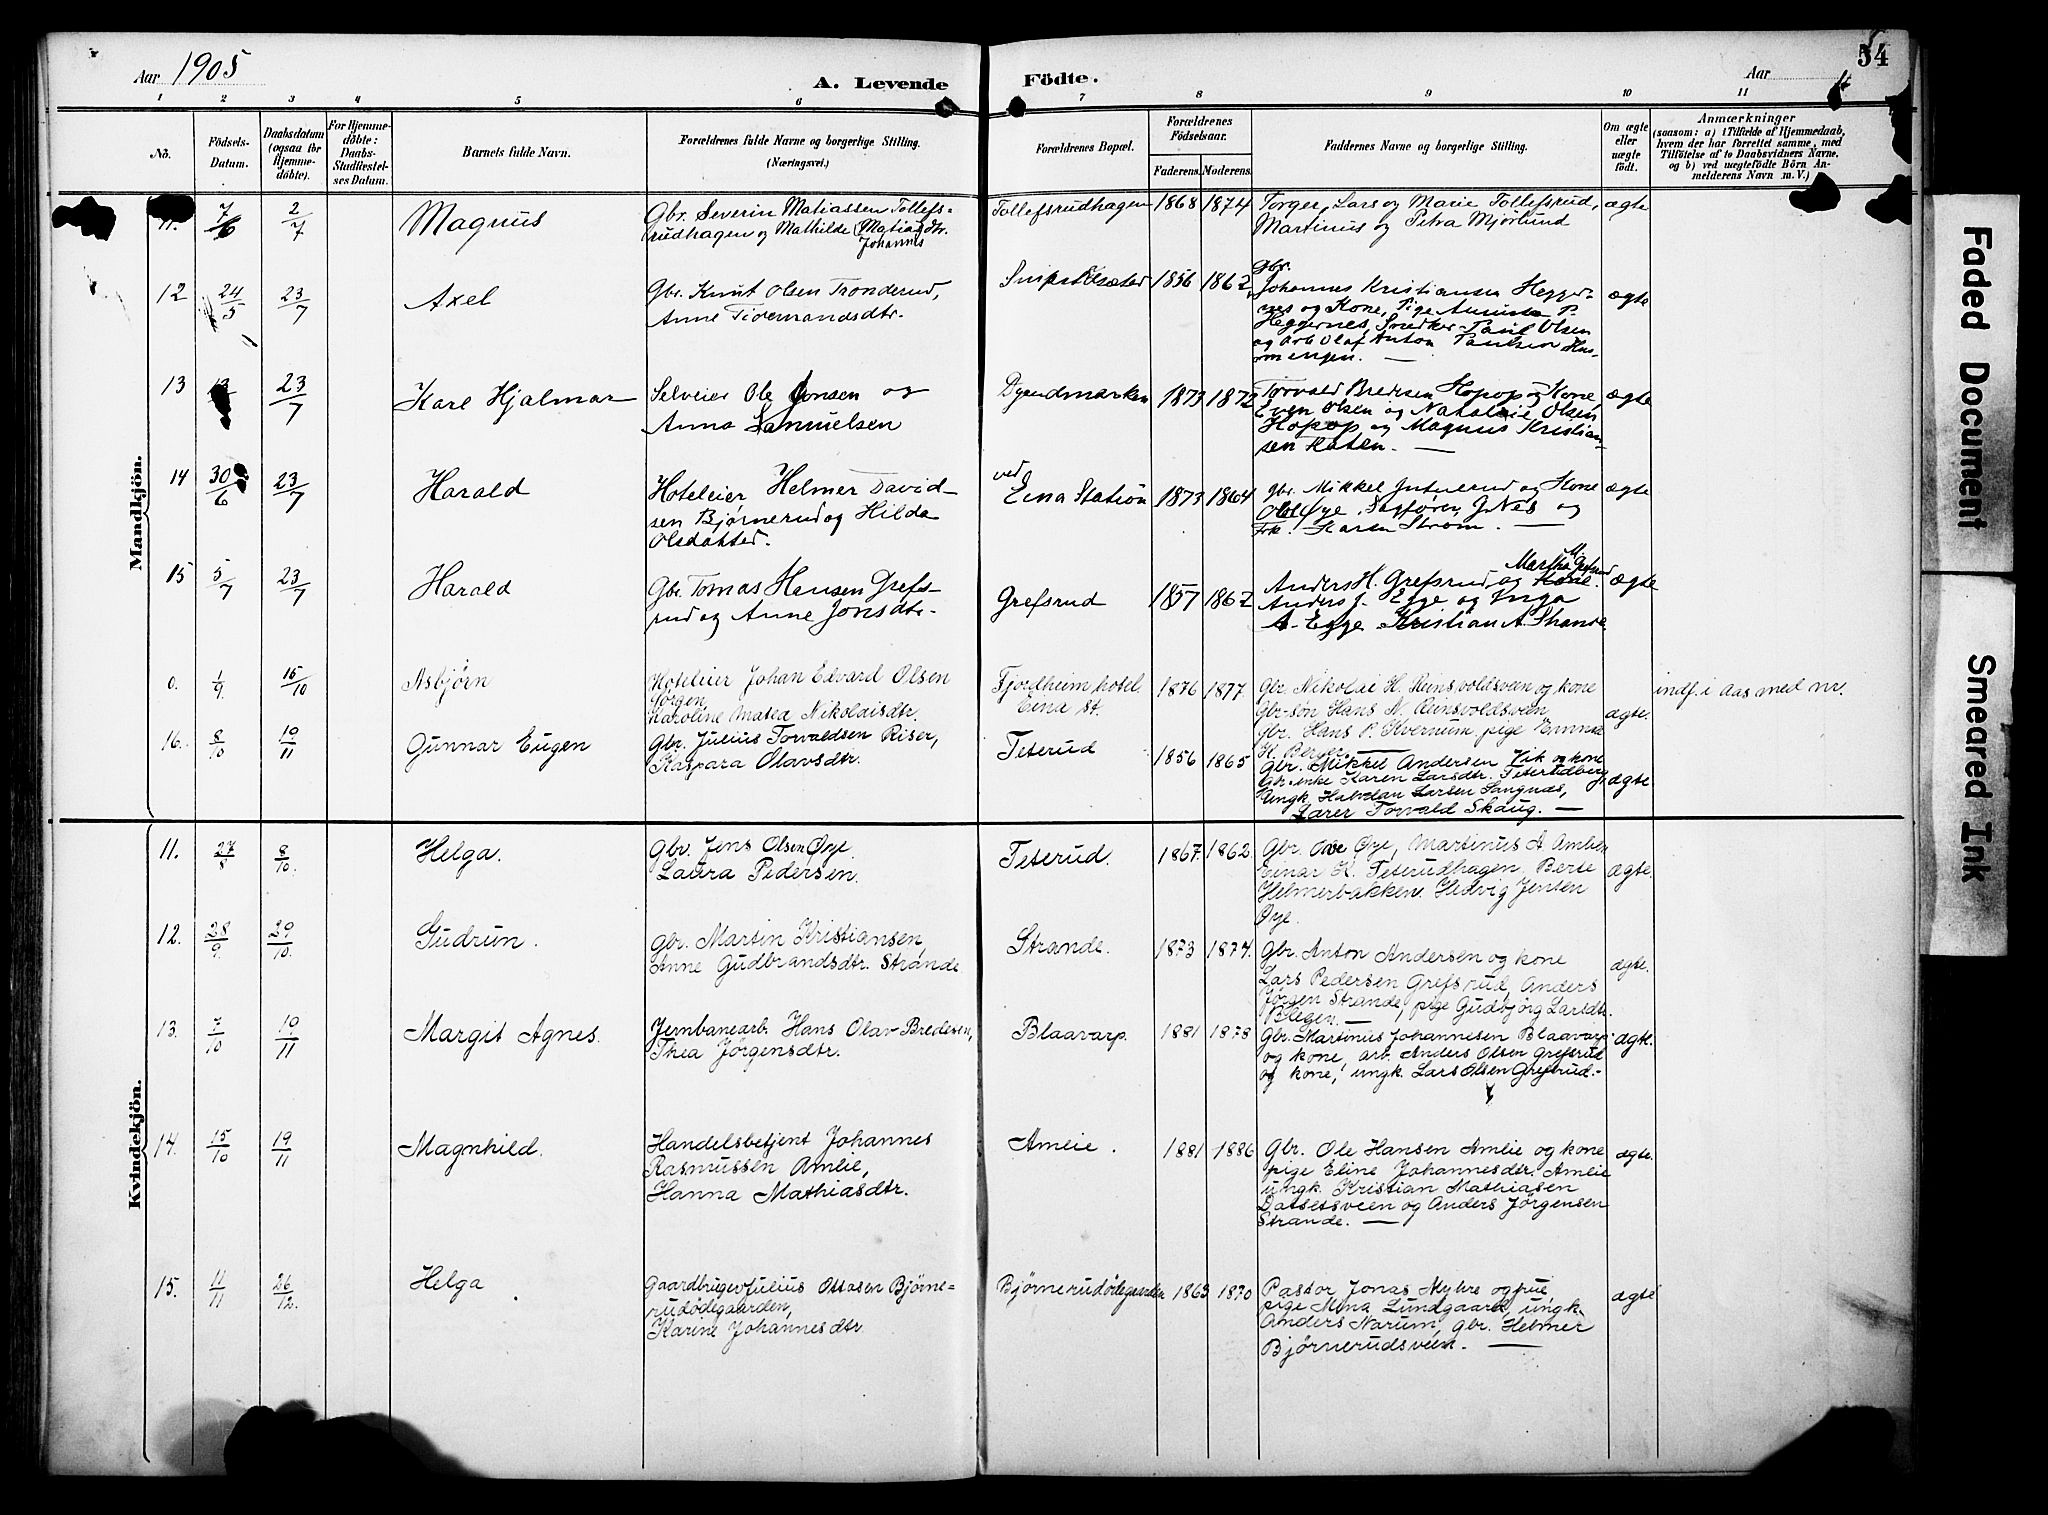 Aar 1905
A. Levende
Födte.
Aar
54
1 2 3 4 5 6 7 8 9 10 11
No.
Födsels-
Datum.
Daabsdatum
(ogsaa for
Hjemme-
döbte).
For Hjemme-
döbte:
Daabs-
Stadfæstel-
ses Datum.
Barnets fulde Navn.
Forældrenes fulde Navne og borgerlige Stilling.
(Næringsvei.)
Forældrenes Bopæl.
Forældrenes
Födselsaar.
Faderens. Moderens.
Faddernes Navne og borgerlige Stilling.
Om ægte
eller
uægte
født.
Anmærkninger
(saasom: a) i Tilfælde af Hjemmedaab,
hvem der har forrettet samme, med
Tilföielse af to Daabsvidners Navne,
og b) ved uægtefödte Börn An-
melderens Navn m. V.)
Mandkjön.
11. 7/6 2/7 Magnus
Gbr. Severin Matiassen Tollefs-
rudhagen og Mathilde Matias dtr.
Johannes
Tollefsrudhagen 1868 1874
Torger, Lars og Marie Tollefsrud,
Martinus og Petra Mjørlund
ægte
12 24/5 23/7 Axel
Gbr. Knut Olsen Tronderud,
Anne Tidemandsdtr.
1856 1862
Gbr.
Johannes Kristiansen Hegger-
nes og Kone, Pige P.
Heggernes, Snedker Paul Olsen
og arb Olaf Anton Paulsen
engen.
ægte
13 23/7 Karl Hjalmar
Selveier Ole Jonsen og
Anna Samuelsen
Dyendmarken 1873 1872
Torvald Bredesen Hopop og Kone,
Even Olsen og Olsen
Hopop og Magnus Kristian-
sen
ægte
14 30/6 23/7 Harald
Hoteleier Helmer David-
sen Bjørnerud og Hilda
Olsdatter.
ved
Eina Station 1873 1864
Gbr. Mikkel og Kone
Øye, Sagfører J. Nes og
Frk. Karen Strøm.
ægte
15 5/7 23/7 Harald
Gbr. Tomas Hansen Grefs-
rud og Anne Jonsdtr.
Grefsrud 1857 1862
Martha M. Grefsrud
Anders H. Grefsrud og Kone.
Anders J. Egge og Inga
A. Egge Kristian A. Strande.
ægte
0. 1/9. 15/10 Asbjørn
Hoteleier Johan Edvard Olsen
Karoline Matea Nikolaisdtr.
Fjordheim hotel.
Eina st.
1876 1877.
Gbr. Nikolai H. Reinsvoldsveen og kone
Gbr-søn Hans N. Reinsvoldsveen,
Gbr. Hans P. Kvernum, pige Emma
ægte.
indf. i Aas med nr.
16. 8/10 19/11 Gunnar Eugen
Gbr. Julius Torvaldsen Riser,
Kaspara Olavsdtr.
Teterud 1856 1865
Gbr. Mikkel Andersen Vik og kone
Gbr.enke Karen Larsdtr. Teterudberg,
Ungk. Halvdan Larsen Sangnæs,
Lærer Torvald Skaug.
ægte.
Kvindekjön.
11. 27/8 8/10. Helga.
Gbr. Jens Olsen Øye.
Laura Pedersen.
Teterud. 1867. 1862.
Gbr. Ove Øye, Martinus A
Einar K. Teterudhagen, Berte
Helmerbakken. Hedvig Jensen
Øye.
ægte.
12. 28/9. 29/10. Gudrun.
Gbr. Martin Kristiansen,
Anne Gudbrandsdtr. Strande
Strande. 1873 1874.
Gbr. Anton Andersen og kone
Lars Pedersen Grefsrud, Anders
Jørgen Strande, pige Gudbjørg Larsdtr.
Blegen.
ægte.
13. 7/10 19/11 Margit Agnes.
Jernbanearb. Hans Olav Bredesen,
Thea Jørgensdtr.
Blaavarp. 1881 1878
Gbr. Martinus Johannesen Blaavarp
og kone, arb. Anders Olsen Grefsrud
og kone, ungk. Lars Olsen Grefsrud.
ægte.
14. 15/10 19/11 Magnhild.
Handelsbetjent Johannes
Rasmussen Amlie,
Hanna Mathiasdtr.
Amlie. 1881 1886
Gbr. Ole Hansen Amlie og kone
pige Eline Johannesdtr. Amlie
ungk. Kristian Mathiasen
Datsetsveen og Anders Jørgensen
Strande.
ægte.
15. 11/11 26/12. Helga
Gaardbruger Julius Ottosen Bjørne-
rudødegaarden,
Karine Johannesdtr
Bjørnerudødegaarden 1863 1870
Pastor Jonas Myhre og frue,
pige Mina Lundgaard, ungk.
Anders Narum, gbr. Helmer
Bjørnerudsveen.
ægte
Faded Document
Smeared Ink